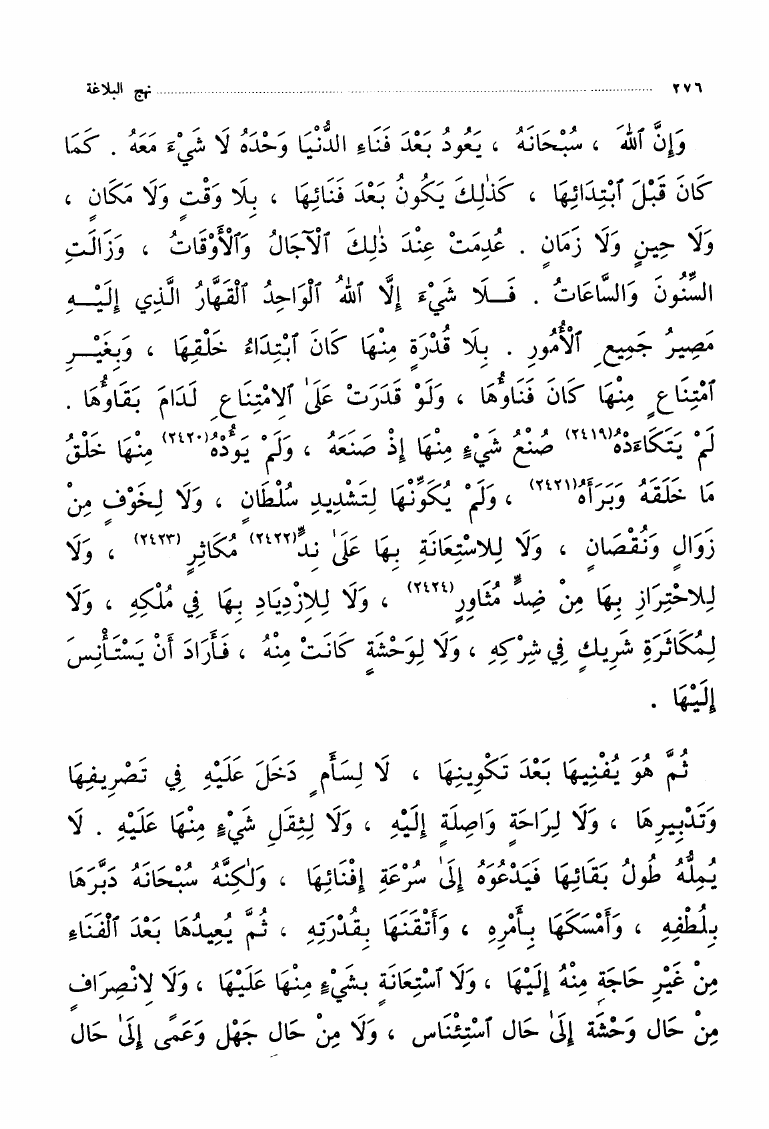 ٢٧٦ ........ نهج البلاغة
وَإِنَّ ٱللهَ ، سُبْحَانَهُ ، يَعُودُ بَعْدَ فَنَاءِ الدُّنْيَا وَحْدَهُ لَا شَيْءَ مَعَهُ . كَمَا
كَانَ قَبْلَ ٱبْتِدَائِهَا ، كَذٰلِكَ يَكُونُ بَعْدَ فَنَائِهَا ، بِلَا وَقْتٍ وَلَا مَكَانٍ ،
وَلَا حِينٍ وَلَا زَمَانٍ . عُدِمَتْ عِنْدَ ذٰلِكَ ٱلْآجَالُ وَٱلْأَوْقَاتُ ، وَزَالَتِ
السِّنُونَ وَالسَّاعَاتُ . فَـلَا شَيْءَ إِلَّا ٱللهُ ٱلْوَاحِدُ ٱلْقَهَّارُ الَّذِي إِلَيْـهِ
مَصِيرُ جَمِيعِ ٱلْأُمُورِ . بِلَا قُدْرَةٍ مِنْهَا كَانَ ٱبْتِدَاءُ خَلْقِهَا ، وَبِغَيْـرِ
ٱمْتِنَاعٍ مِنْهَا كَانَ فَنَاؤُهَا ، وَلَوْ قَدَرَتْ عَلَىٰ ٱلِامْتِنَاعِ لَدَامَ بَقَاؤُهَا .
لَمْ يَتَكَاءَدْهُ(٢٤١٩) صُنْعُ شَيْءٍ مِنْهَا إِذْ صَنَعَهُ ، وَلَمْ يَؤُدْهُ(٢٤٢٠) مِنْهَا خَلْقُ
مَا خَلَقَهُ وَبَرَأَهُ(٢٤٢١) ، وَلَمْ يُكَوِّنْهَا لِتَشْدِيدِ سُلْطَانٍ ، وَلَا لِخَوْفٍ مِنْ
زَوَالٍ وَنُقْصَانٍ ، وَلَا لِلاسْتِعَانَةِ بِهَا عَلَىٰ نِدٍّ(٢٤٢٢) مُكَاثِرٍ(٢٤٢٣) ، وَلَا
لِلاحْتِرَازِ بِهَا مِنْ ضِدٍّ مُثَاوِرٍ(٢٤٢٤) ، وَلَا لِلازْدِيَادِ بِهَا فِي مُلْكِهِ ، وَلَا
لِمُكَاثَرَةِ شَرِيكٍ فِي شِرْكِهِ ، وَلَا لِوَحْشَةٍ كَانَتْ مِنْهُ ، فَأَرَادَ أَنْ يَسْتَأْنِسَ
إِلَيْهَا .
ثُمَّ هُوَ يُفْنِيهَا بَعْدَ تَكْوِينِهَا ، لَا لِسَأَمٍ دَخَلَ عَلَيْهِ فِي تَصْرِيفِهَا
وَتَدْبِيرِهَا ، وَلَا لِرَاحَةٍ وَاصِلَةٍ إِلَيْهِ ، وَلَا لِثِقَلِ شَيْءٍ مِنْهَا عَلَيْهِ . لَا
يُمِلُّهُ طُولُ بَقَائِهَا فَيَدْعُوَهُ إِلَىٰ سُرْعَةِ إِفْنَائِهَا ، وَلٰكِنَّهُ سُبْحَانَهُ دَبَّرَهَا
بِلُطْفِهِ ، وَأَمْسَكَهَا بِأَمْرِهِ ، وَأَتْقَنَهَا بِقُدْرَتِهِ ، ثُمَّ يُعِيدُهَا بَعْدَ ٱلْفَنَاءِ
مِنْ غَيْرِ حَاجَةٍ مِنْهُ إِلَيْهَا ، وَلَا ٱسْتِعَانَةٍ بِشَيْءٍ مِنْهَا عَلَيْهَا ، وَلَا لِانْصِرَافٍ
مِنْ حَالِ وَحْشَةٍ إِلَىٰ حَالِ ٱسْتِئْنَاسٍ ، وَلَا مِنْ حَالِ جَهْلٍ وَعَمًى إِلَىٰ حَالِ